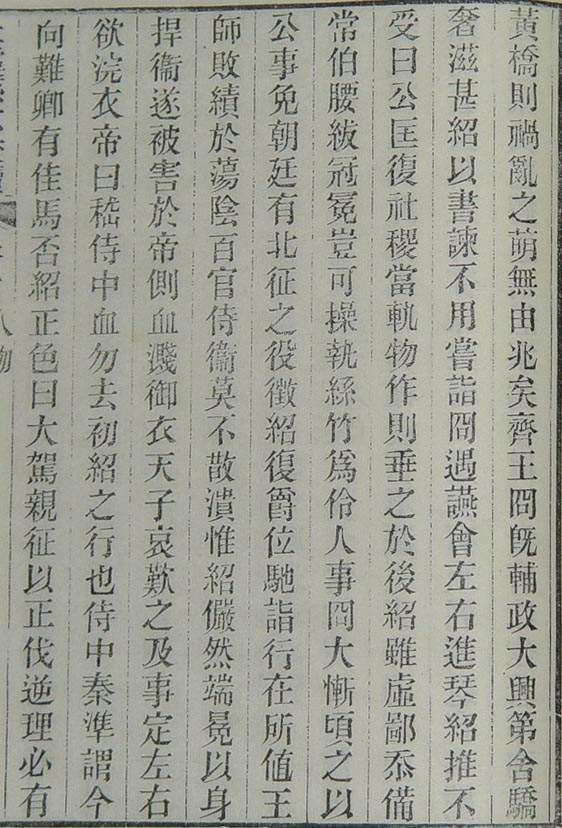 黃橋則禍亂之萌無由兆矣齊王冏既輔政大興第舍驕
奢滋甚紹以書諫不用嘗詣冏遇讌會左右進琴紹推不
受曰公匡復社稷當軌物作則垂之於後紹雖虛鄙忝備
常伯腰紱冠冕豈可操執絲竹爲伶人事冏大慚頃之以
公事免朝廷有北征之役徵紹復爵位馳詣行在所値王
師敗績於蕩陰百官侍衞莫不散潰惟紹儼然端冕以身
捍衞遂被害於帝側血濺御衣天子哀歎之及事定左右
欲浣衣帝曰嵇侍中血勿去初紹之行也侍中秦準謂今
向難卿有佳馬否紹正色曰大駕親征以正伐逆理必有